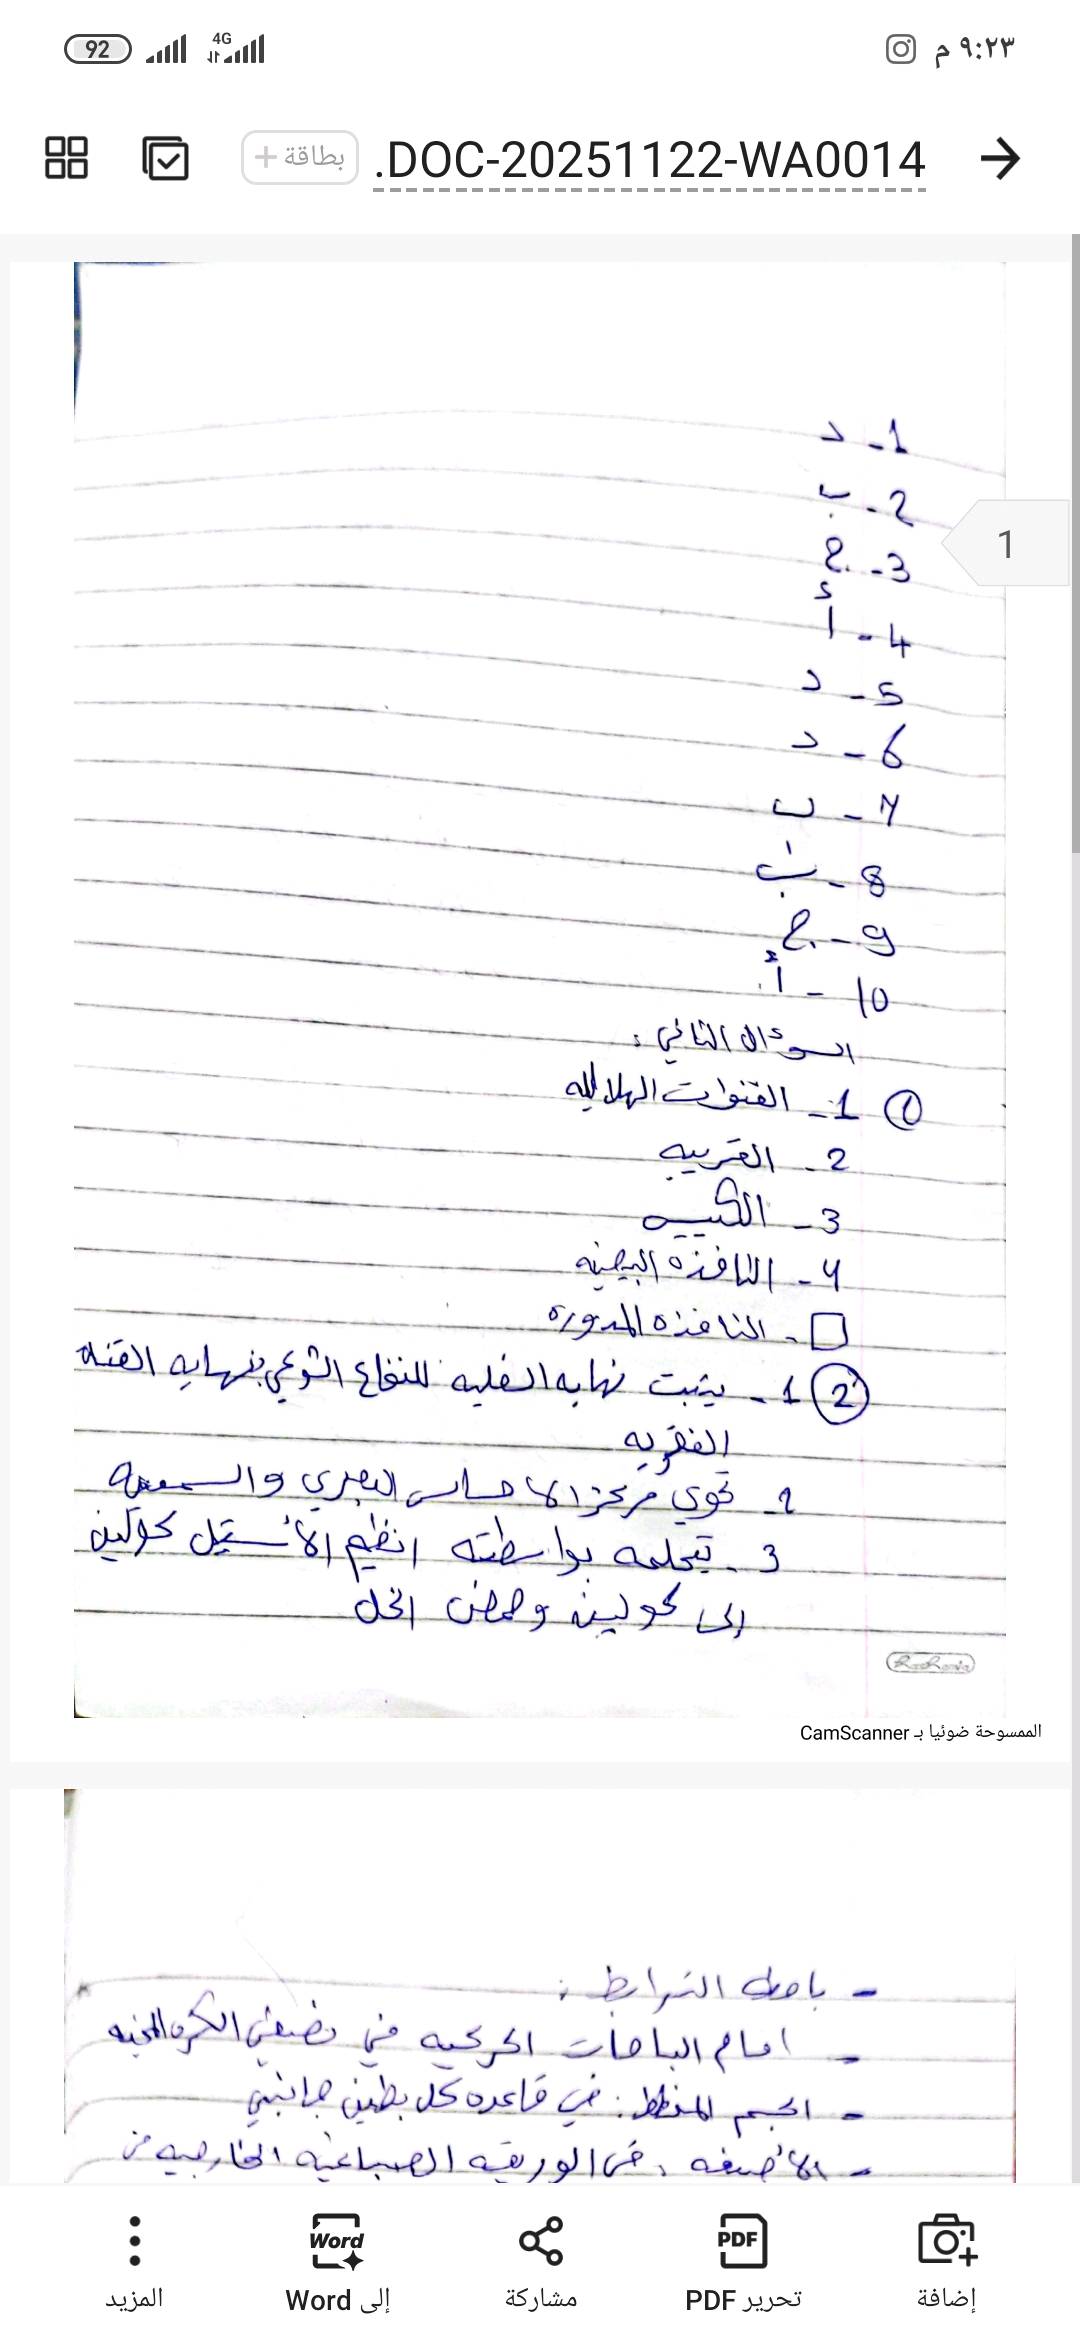 92
4G
٩:٢٣ م
بطاقة +
.DOC-20251122-WA0014
1- د
2- ب
3- ج
4- أ
5- د
6- د
7- ب
8- ب
9- ج
10- أ
السؤال الثاني:
① 1- القنوات الهلاليه
2- القربيه
3- الكييسه
4- النافذه البيضيه
- النافذه المدوره
② 1- يثبت نهايه الخليه للنخاع الشوعي بنهايه القناه
الفقريه
2- تحوي مركز الاحساس البصري والسمعيه
3- بواسطته انظيم الأستيل كولين
إلى كولين وحمض الخل
الممسوحة ضوئيا بـ CamScanner
1
- باحه الترابط:
- امام الباحات الحركيه في نصفي الكره المخيه
- الجسم المخطط: في قاعده كل بطين جانبي
- الوريقه الخارجيه من
المزيد
إلى Word
مشاركة
تحرير PDF
إضافة